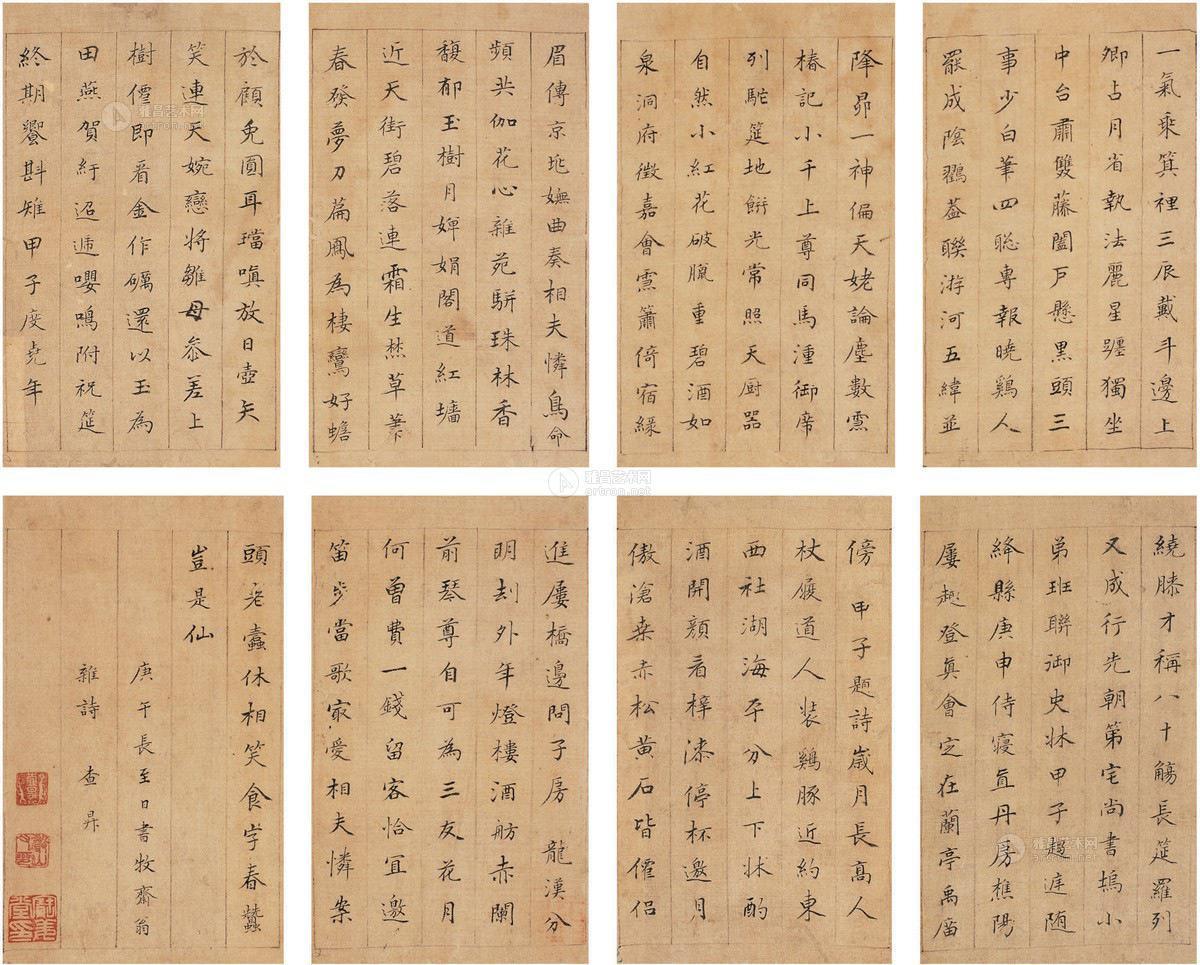 一氣乘箕裡三辰戴斗邊上
卿占月省執法麗星躔獨坐
中台肅雙藤闔戶懸黑頭三
事少白筆四聰專報曉鷄人
罷成陰鸐葢聯游河五緯並
降昴一神偏天姥論塵數靈
椿記小千上尊同馬湩御席
列駝筵地餅光常照天厨器
自然小紅花破臘重碧酒如
泉洞府徵嘉會靈簫倚宿緣
眉傳京兆嫵曲奏相夫憐鳥命
頻共伽花心雜苑駢珠林香
馥郁玉樹月嬋娟閣道紅墻
近天街碧落連霜生焚草筆
春發夢刀篇鳳為棲鸞好蟾
於顧兔圓耳璫嗔放日壺矢
笑連天婉戀將雛母叅差上
樹僊即看金作礪還以玉為
田燕賀紆迢遞嚶鳴附祝筵
終期蠁斟雉甲子度堯年
繞膝才稱八十觴長筵羅列
又成行先朝第宅尚書塢小
弟班聯御史牀甲子趨庭随
絳縣庚申侍寝直丹房樵陽
屢起登真會定在蘭亭禹廟
傍 甲子題詩歲月長高人
杖屨道人装鷄豚近約東
西社湖海平分上下牀酌
酒開顔看梓漆停杯邀月
傲滄桒赤松黄石皆僊侣
進屨橋邊問子房 龍漢分
明刦外年燈樓酒舫赤闌
前琴尊自可為三友花月
何曾費一錢留客恰宜邀
笛步當歌家愛相夫憐案
頭老蠹休相笑食字春蠶
豈是仙
庚午長至日書牧齋翁
雜詩 查昇
雅昌艺术网
artron.net